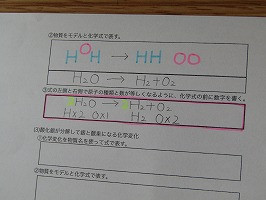 ②物質をモデルと化学式で表す。
HOH → HH OO
H₂O → H₂+O₂
③式の左側と右側で原子の種類と数が等しくなるように、化学式の前に数字を書く。
H₂O → H₂+O₂
H×2 O×1 H2 O×2
(3)酸化銀が分解して銀と酸素になる化学変化
①化学変化を物質名を使って式で表す。
②物質をモデルと化学式で表す。